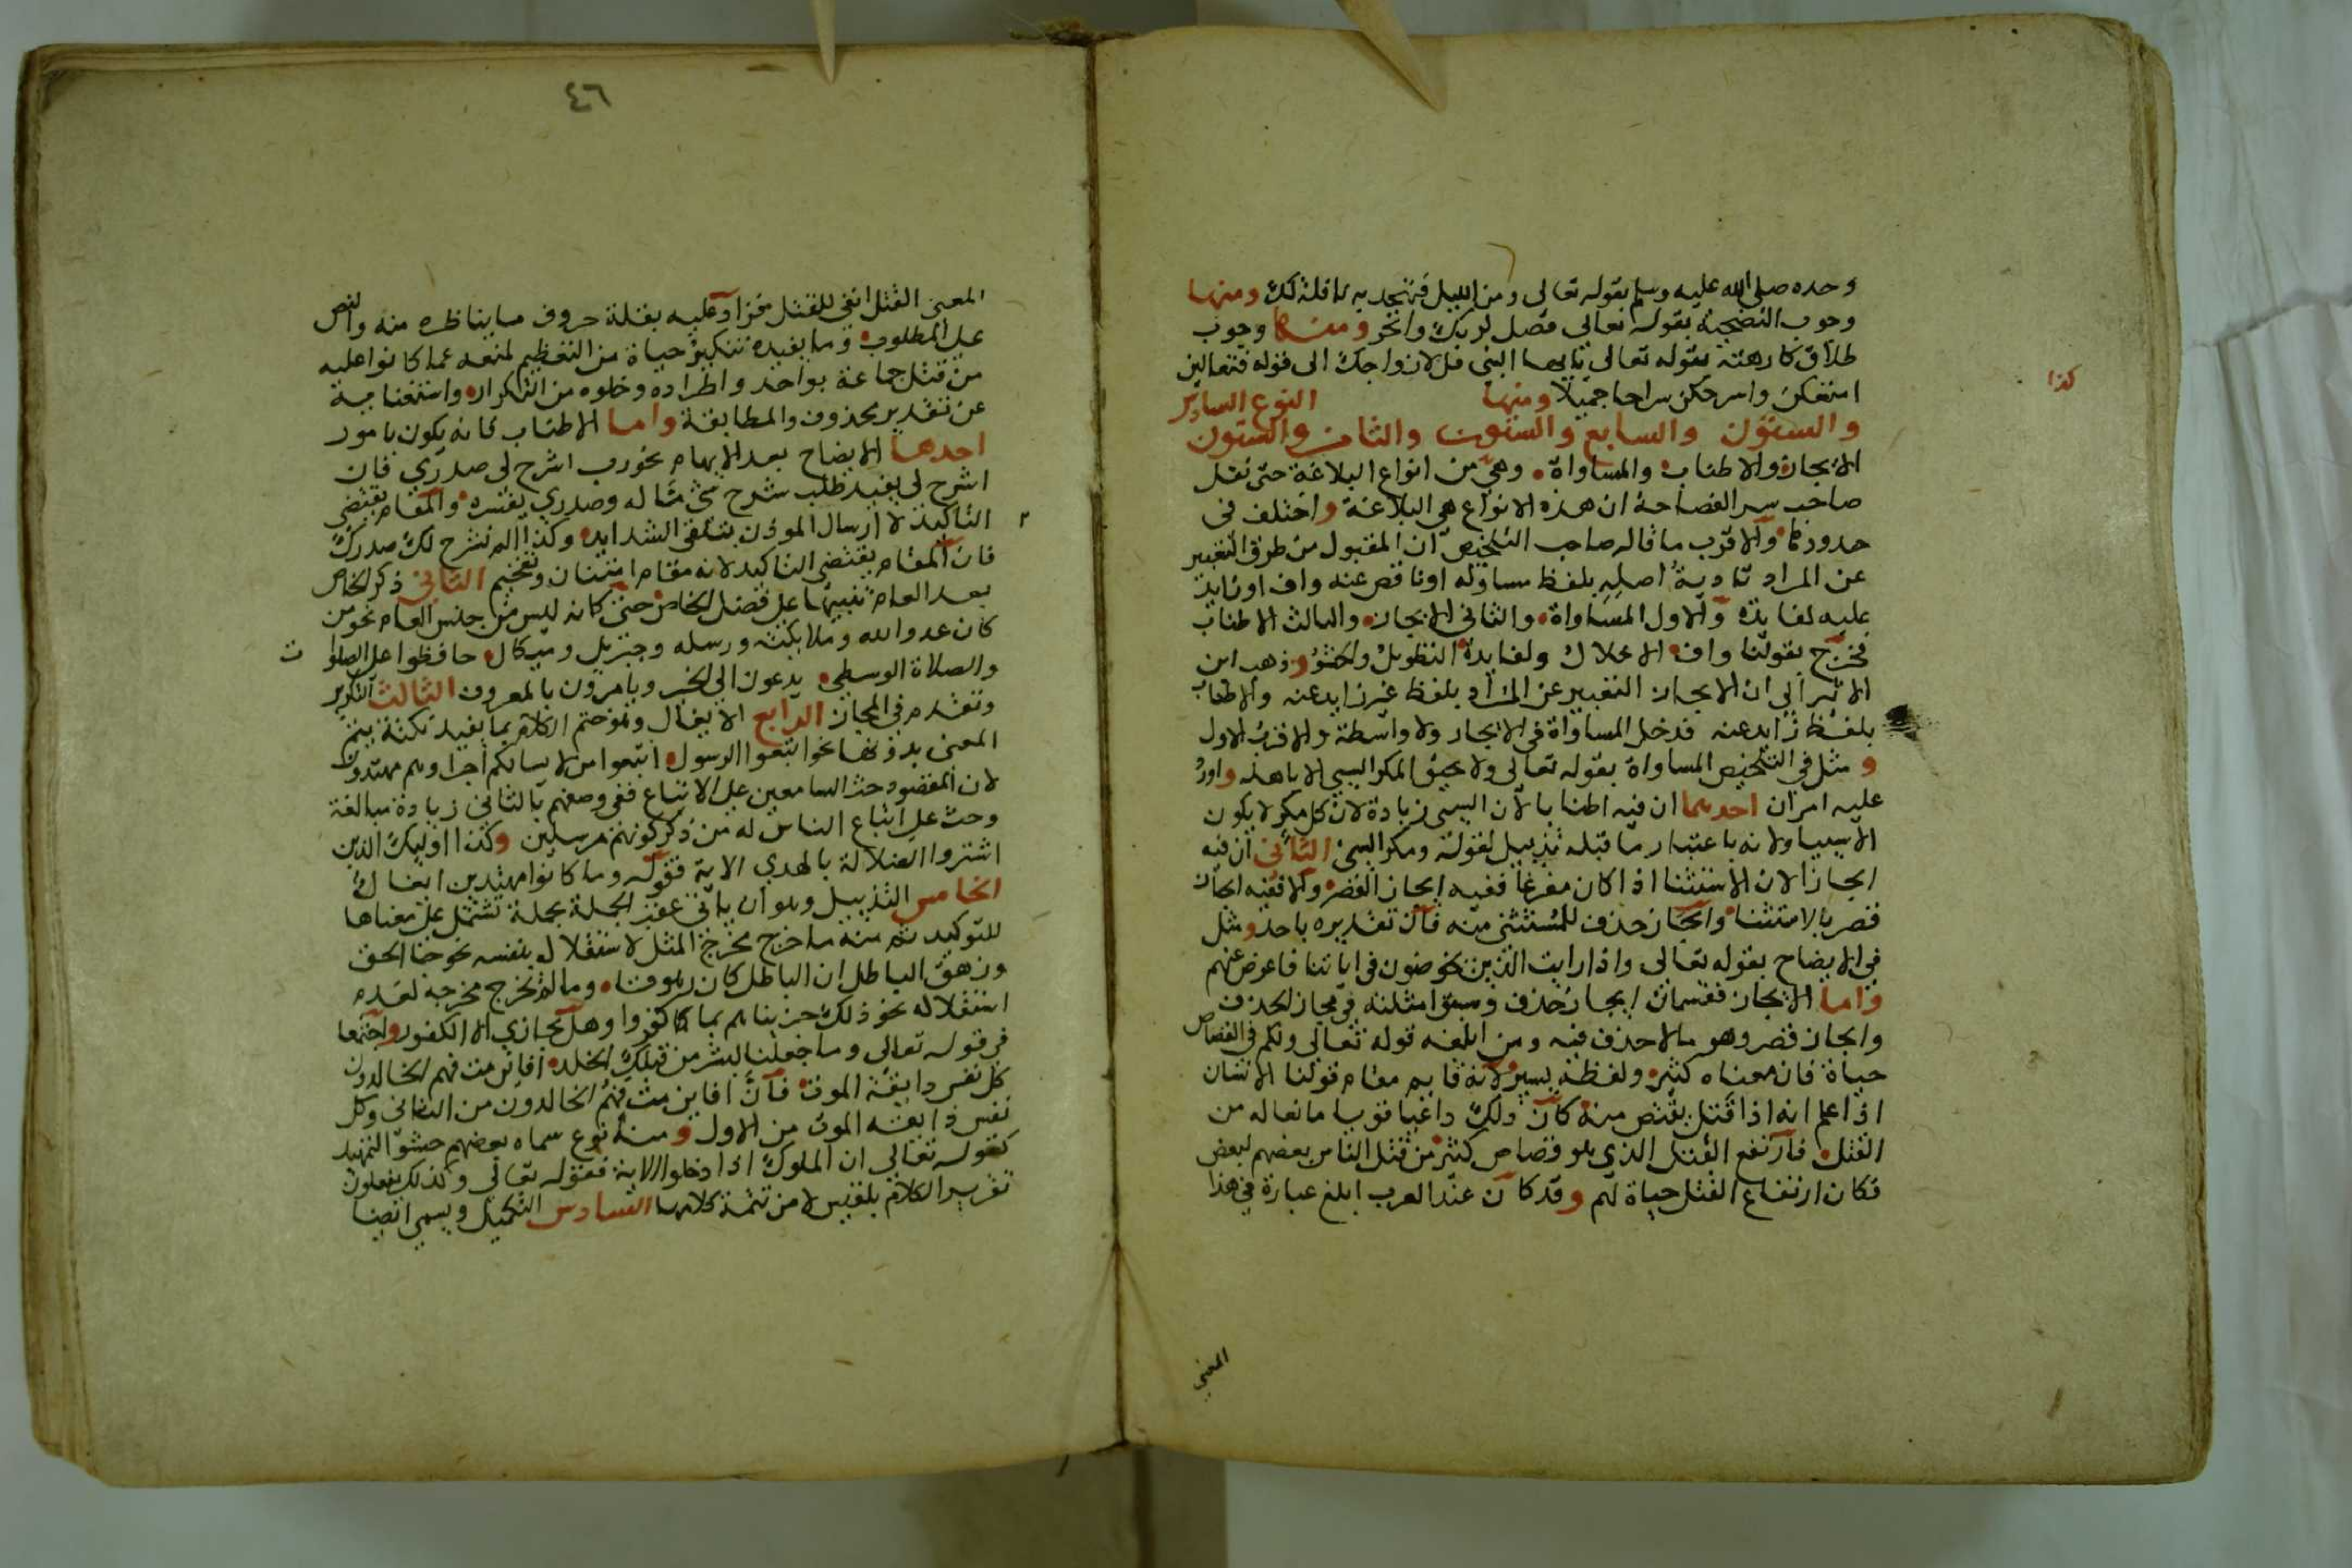 وحده صلى الله عليه وسلم بقوله تعالى ومن الليل فتهجد به نافلة لك ومنها
وجوب التضحية بقوله تعالى فصل لربك وانحر ومنها وجوب
طلاق كارهته بقوله تعالى يايها النبى قل لازواجك الى قوله فتعالين
امتعكن واسرحكن سراحا جميلا ومنها النوع السادس
كذا
والستون والسابع والستون والثامن والستون
الايجاز والاطناب والمساواة وهي من انواع البلاغة حتى نقل
صاحب سر الفصاحة ان هذه الانواع هي البلاغة واختلف في
حدودها والاقرب ما قاله صاحب التلخيص ان المقبول من طرق التعبير
عن المراد تادية اصله بلفظ مساو له او ناقص عنه واف او زايد
عليه لفايدة والاول المساواة والثاني الايجاز والثالث الاطناب
فخرج بقولنا واف الاخلال ولفايدة التطويل والحشو وذهب ابن
الاثير الى ان الايجاز التعبير عن المراد بلفظ غير زايد عنه والاطناب
بلفظ زايد عنه فدخل المساواة في الايجاز ولا واسطة والاقرب الاول
ومثل في التلخيص المساواة بقوله تعالى ولا يحيق المكر السيي الا باهله واورد
عليه امران احدهما ان فيه اطنابا لان السيى زيادة لان كل مكر لا يكون
الا سييا ولانه باعتبار ما قبله تذييل لقوله ومكر السيئ الثاني ان فيه
ايجازا لان الاستثنا اذا كان مفرغا ففيه ايجاز القصر ولا فيه ايجاز
قصر بالاستثنا وايجاز حذف للمستثنى منه فان تقديره باحد ومثل
في الايضاح بقوله تعالى واذا رايت الذين يخوضون في اياتنا فاعرض عنهم
واما الايجاز فقسمان ايجاز حذف وسبق امثلته في مجاز الحذف
وايجاز قصر وهو ما لا حذف فيه ومن ابلغه قوله تعالى ولكم في القصاص
حياة فان معناه كثير ولفظه يسير لانه قايم مقام قولنا الانسان
اذا علم انه اذا قتل يقتص منه كان ذلك داعيا قويا مانعا له من
القتل فارتفع القتل الذي هو قصاص كثير من قتل الناس بعضهم لبعض
فكان ارتفاع القتل حياة لهم وقد كان عند العرب ابلغ عبارة في هذا
المعنى
٤٦
المعنى القتل انفى للقتل فزاد عليه بقلة حروف ما يناظره منه والنص
على المطلوب وما يفيده تنكير حياة من التعظيم لمنعه عما كانوا عليه
من قتل جماعة بواحد واطراده وخلوه من التكرار واستغنايه
عن تقدير محذوف والمطابقة واما الاطناب فانه يكون بامور
احدها الايضاح بعد الابهام نحو رب اشرح لي صدري فان
اشرح لي يفيد طلب شرح شي ما له وصدري يفسره والمقام يقتضي
التاكيد لا ارسال الموذن بتلقي الشدايد وكذا الم نشرح لك صدرك
فان المقام يقتضي التاكيد لانه مقام امتنان وتفخيم الثاني ذكر الخاص
بعد العام تنبيها على فضل الخاص حتى كانه ليس من جنس العام نحو من
كان عدوا لله وملايكته ورسله وجبريل وميكال حافظوا على الصلوا
ت
والصلاة الوسطى يدعون الى الخير ويامرون بالمعروف الثالث التكرير
وتقدم في المجاز الرابع الايغال وهو ختم الكلام بما يفيد نكتة يتم
المعنى بدونها نحو اتبعوا الرسول اتبعوا من لا يسالكم اجرا وهم مهتدون
لان المقصود حث السامعين على الاتباع ففي وصفهم بالثاني زيادة مبالغة
وحث على اتباع الناس له من ذكر كونهم مرسلين وكذا اوليك الذين
اشتروا الضلالة بالهدي الاية فقوله وما كانوا مهتدين ايغال
الخامس التذييل وهو ان ياتي عقب الجملة بجملة تشتمل على معناها
للتوكيد ثم منه ما خرج مخرج المثل لاستقلاله بنفسه نحو جا الحق
وزهق الباطل ان الباطل كان زهوقا وما لم يخرج مخرجه لعدم
استقلاله نحو ذلك جزيناهم بما كفروا وهل نجازي الا الكفور واجتمعا
في قوله تعالى وما جعلنا لبشر من قبلك الخلد افاين مت فهم الخالدون
كل نفس دايقة الموت فان افاين مت فهم الخالدون من الثاني وكل
نفس ذايقة الموت من الاول ومنه نوع سماه بعضهم حشو التمهيد
كقوله تعالى ان الملوك اذا دخلوا الاية فقوله تعالى وكذلك يفعلون
تقرير الكلام بلقيس لا من تتمة كلامها السادس التكميل ويسمى ايضا